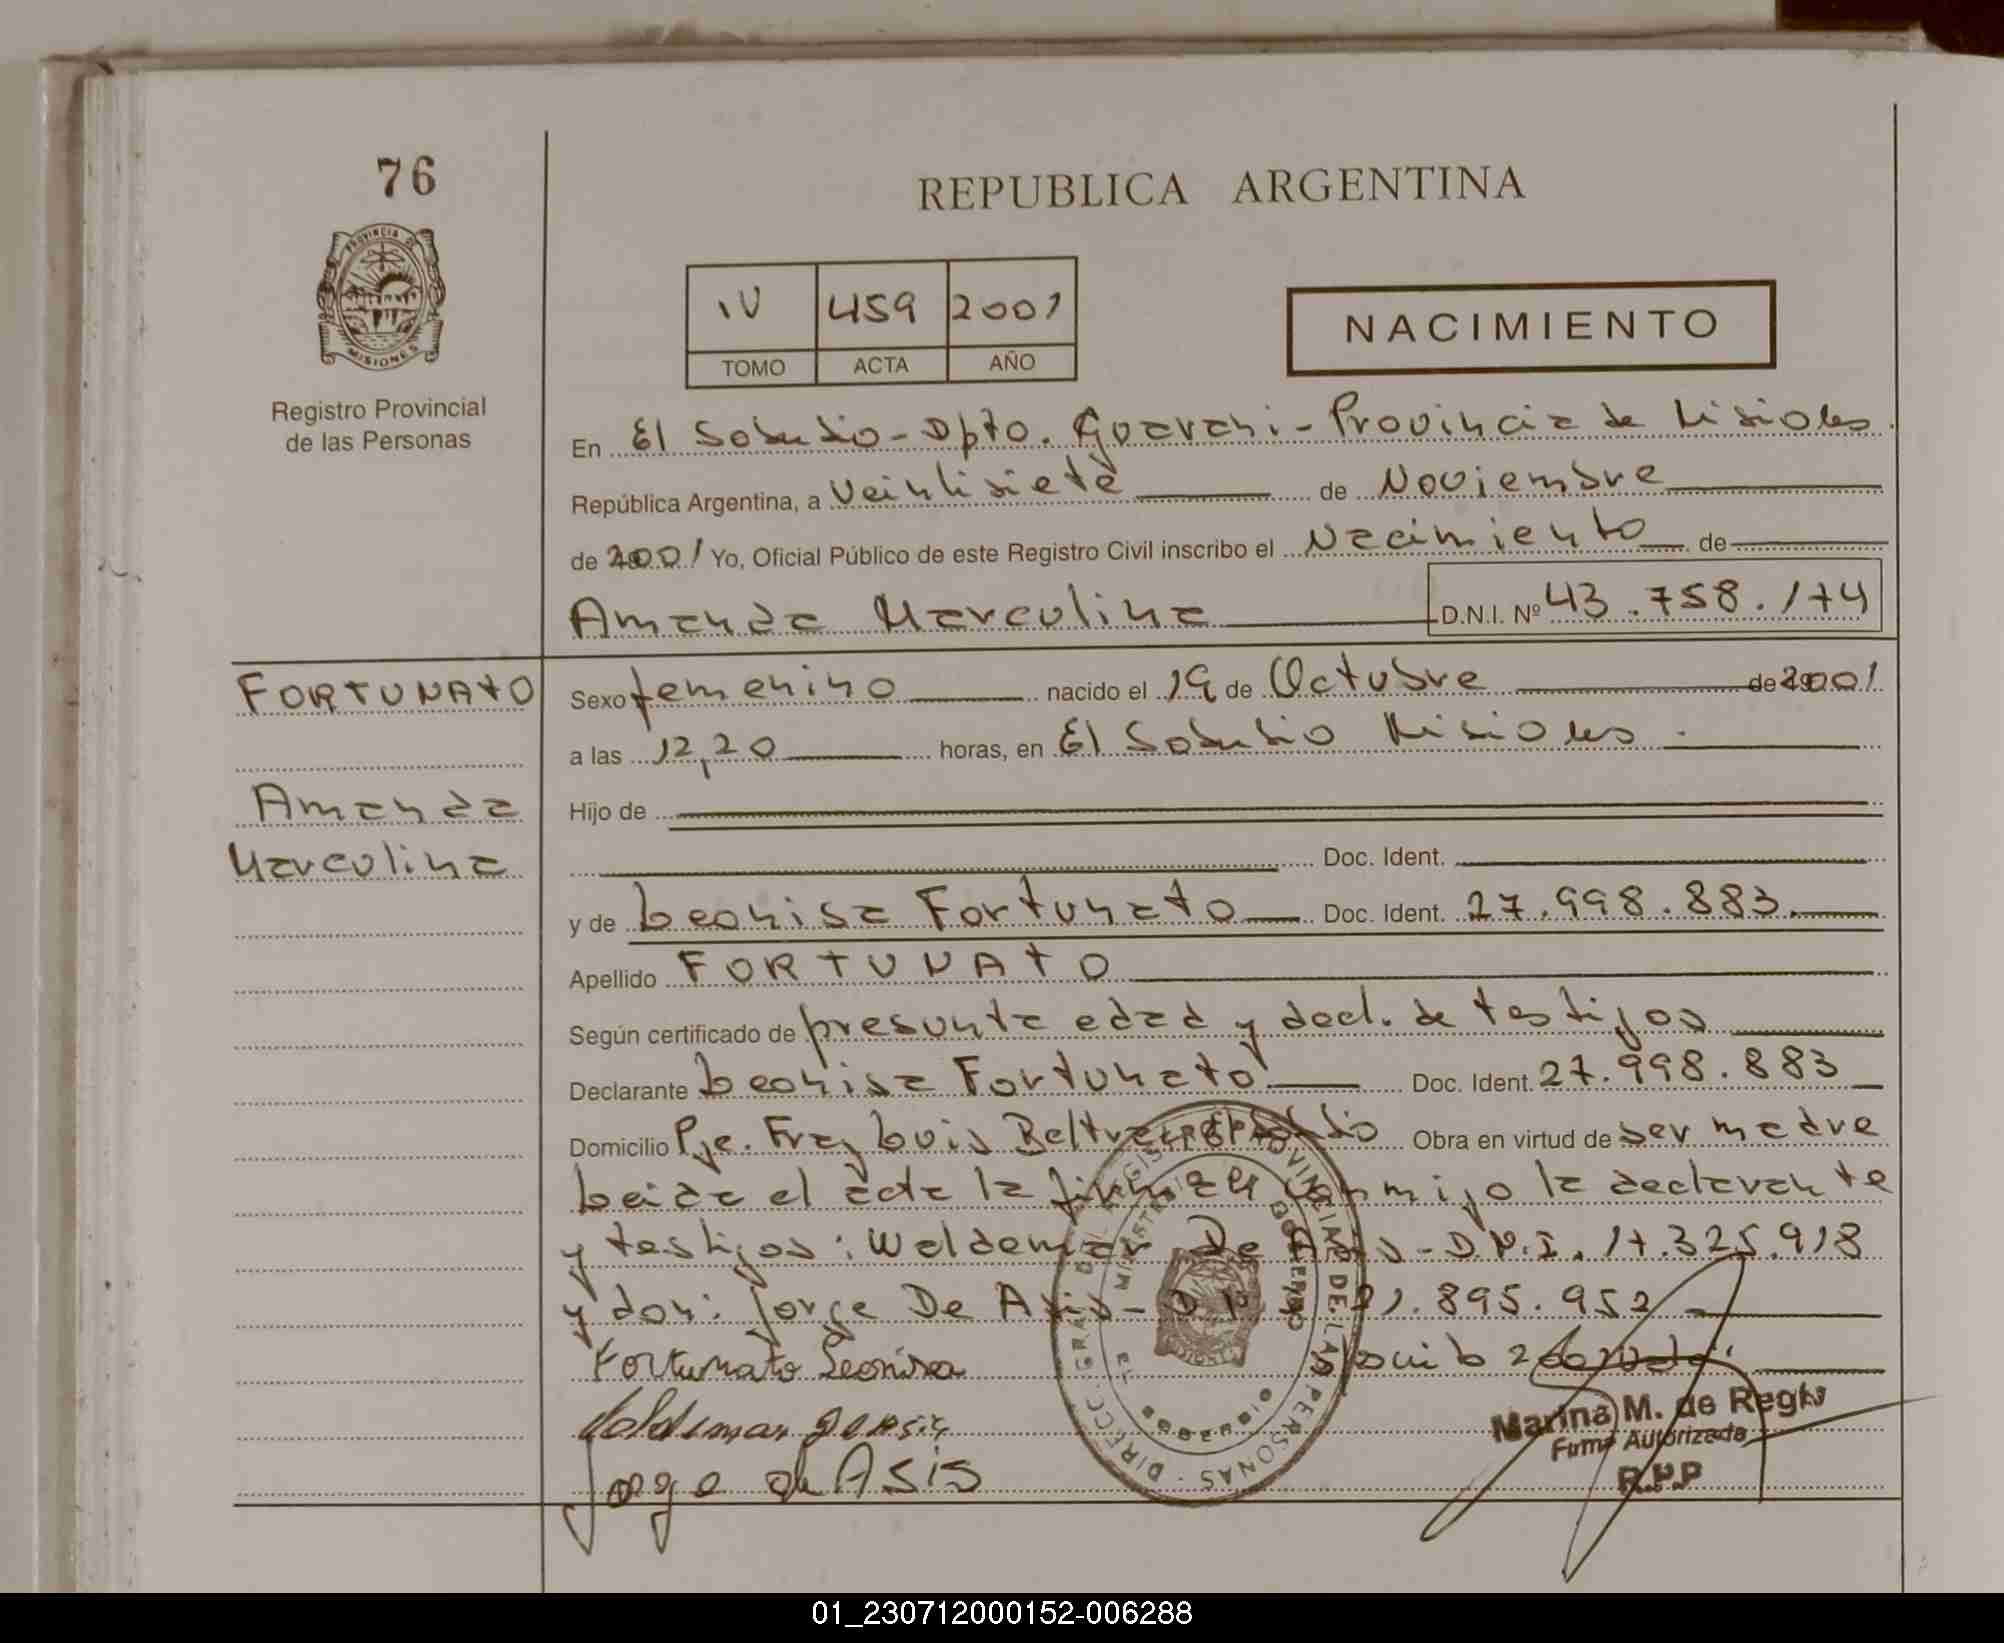 76
REPUBLICA ARGENTINA
PROVINCIA DE
MISIONES
IV 459 2001
TOMO ACTA AÑO
NACIMIENTO
Registro Provincial
de las Personas
En El Soberbio - Dpto. Guarani - Provincia de Misiones
República Argentina, a Veintisiete de Noviembre
de 2001 Yo, Oficial Público de este Registro Civil inscribo el Nacimiento de
Amanda Marculina D.N.I. Nº 43.758.174
FORTUNATO
Amanda
Marculina
Sexo femenino nacido el 19 de Octubre de 2001
a las 12,20 horas, en El Soberbio Misiones
Hijo de
Doc. Ident.
y de Leonisa Fortunato Doc. Ident. 27.998.883.
Apellido FORTUNATO
Según certificado de presunta edad y decl. de testigos
Declarante Leonisa Fortunato Doc. Ident. 27.998.883
Domicilio Pje. Fray Luis Beltran Obra en virtud de ser madre
Leida el acta la firman conmigo la declarante
y testigos: Waldemar De Asis - D.N.I. 17.325.918
y don: Jorge De Asis - 21.895.952
Fortunato Leonisa
Jorge de Asis
DIRECC. GRAL. DEL REGISTRO PROVINCIAL DE LAS PERSONAS
MINISTERIO DE GOBIERNO
EL SOBERBIO
Marina M. de Regis
Firma Autorizada
R.P.P
01_230712000152-006288